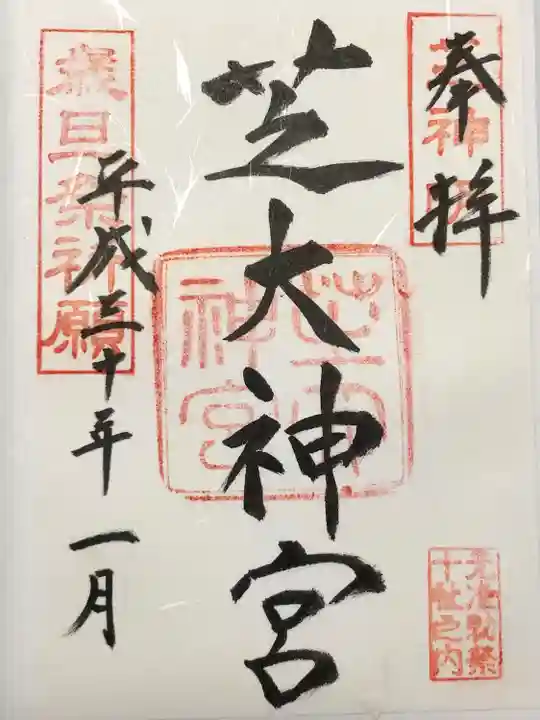 奉拝
芝神明
芝大神宮
芝大神宮
平成三十年 一月
歳旦祭祈願
元准勅祭
十社之内